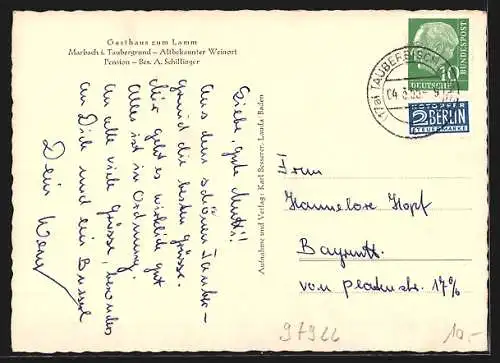 Gasthaus zum Lamm
Marbach i. Taubergrund – Altbekannter Weinort
Pension – Bes. A. Schillinger
Liebe, gute Mutti!
Aus dem schönen Tauber-
grund die besten Grüsse.
Mir geht es wirklich gut
Alles ist in Ordnung.
An alle viele Grüsse, besonders
an Dich und ein Busserl
Dein
Aufnahme und Verlag: Karl Besserer, Lauda/Baden
(17a) TAUBERBISCHOF
10
DEUTSCHE
BUNDESPOST
NOTOPFER
2 BERLIN
STEUERMARKE
Frau
Hannelore Hopf
Bayreuth
97922
10.-